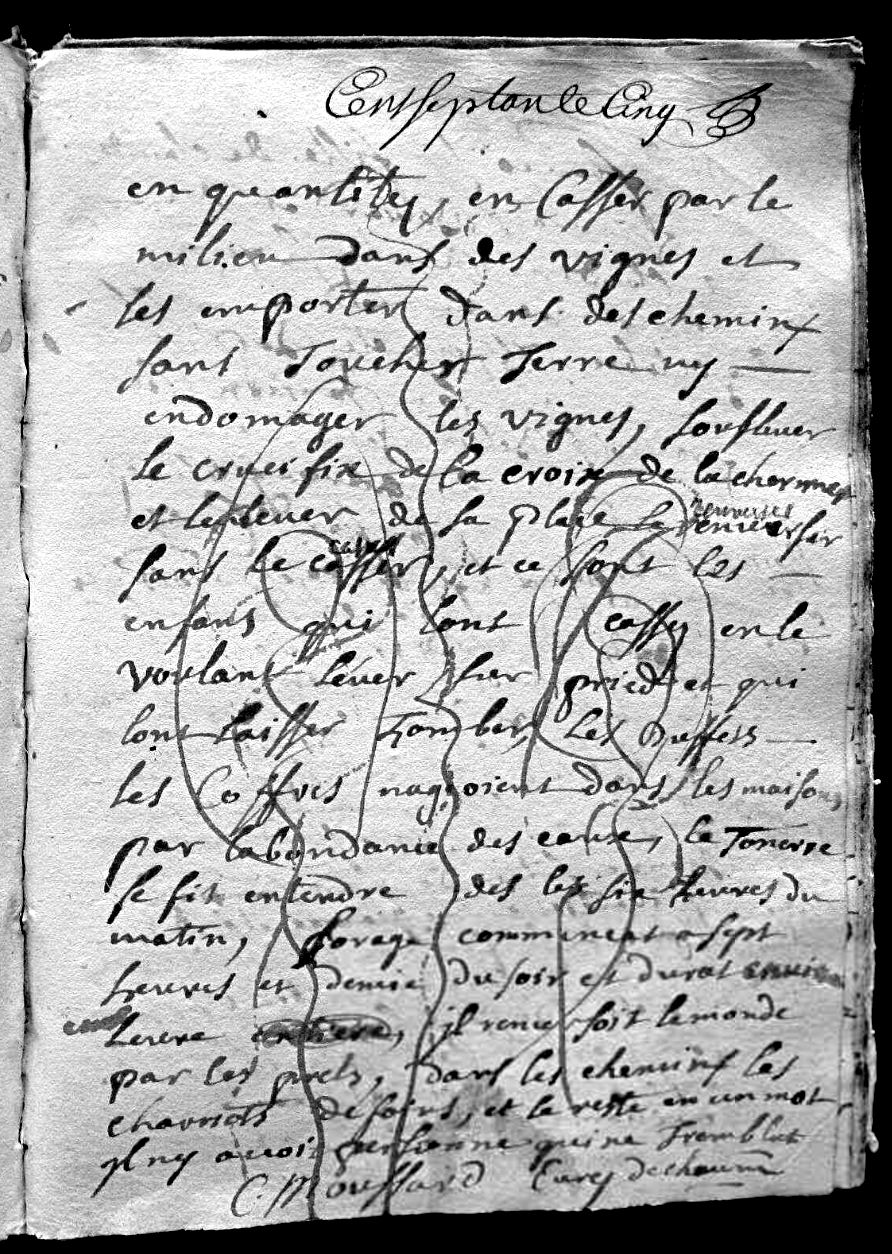 Cent septante Cinq
en quantité, en Casser par le
milieu dans des vignes et
les emporter dans des chemins
sans Toucher Terre ny
endomager les vignes, souslever
le crucifix de la croix de la
et lenlever de sa place le renverser
sans le casser, et ce sont les
enfans qui lont casséy en le
voulant lever sur pried et qui
lont laisser Tomber, les Buffets
les Coffres nagoient dans les maisons
par labondance des eaux, le Tonerre
se fit entendre des les six heures du
matin, lorage commencat a sept
heures et demie du soir et durat
heure entiere, jl renversoit le monde
par les prets, dans les chemins les
chariots de foins, et le reste en un mot
jl ny avoit personne qui ne Tremblat
C. Moussard Curéy de